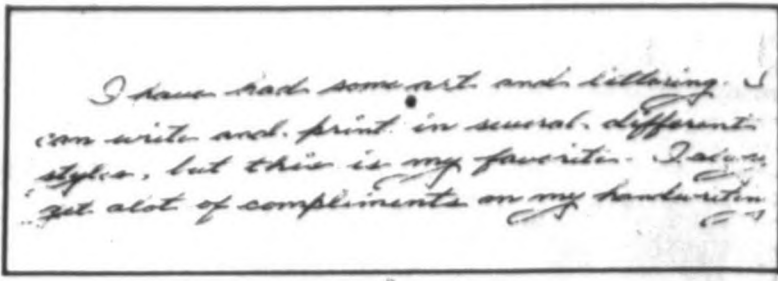 I have had some art and lettering. I
can write and print in several different
styles, but this is my favorite. I always
get alot of compliments on my handwritin